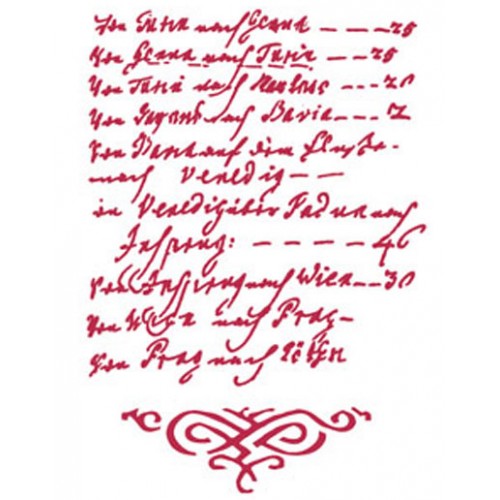 Von Turin nach Genua – – – – 25
Von Genua nach Turin – – – 25
Von Turin nach – – – 20
Von nach Pavia – – – 2
Von Pavia auf dem Flusse –
nach Venedig – –
in Venedig über Padua nach
Insprug: – – – – – 46
Von Insprug nach Wien – – – 30
Von Wien nach Prag –
Von Prag nach